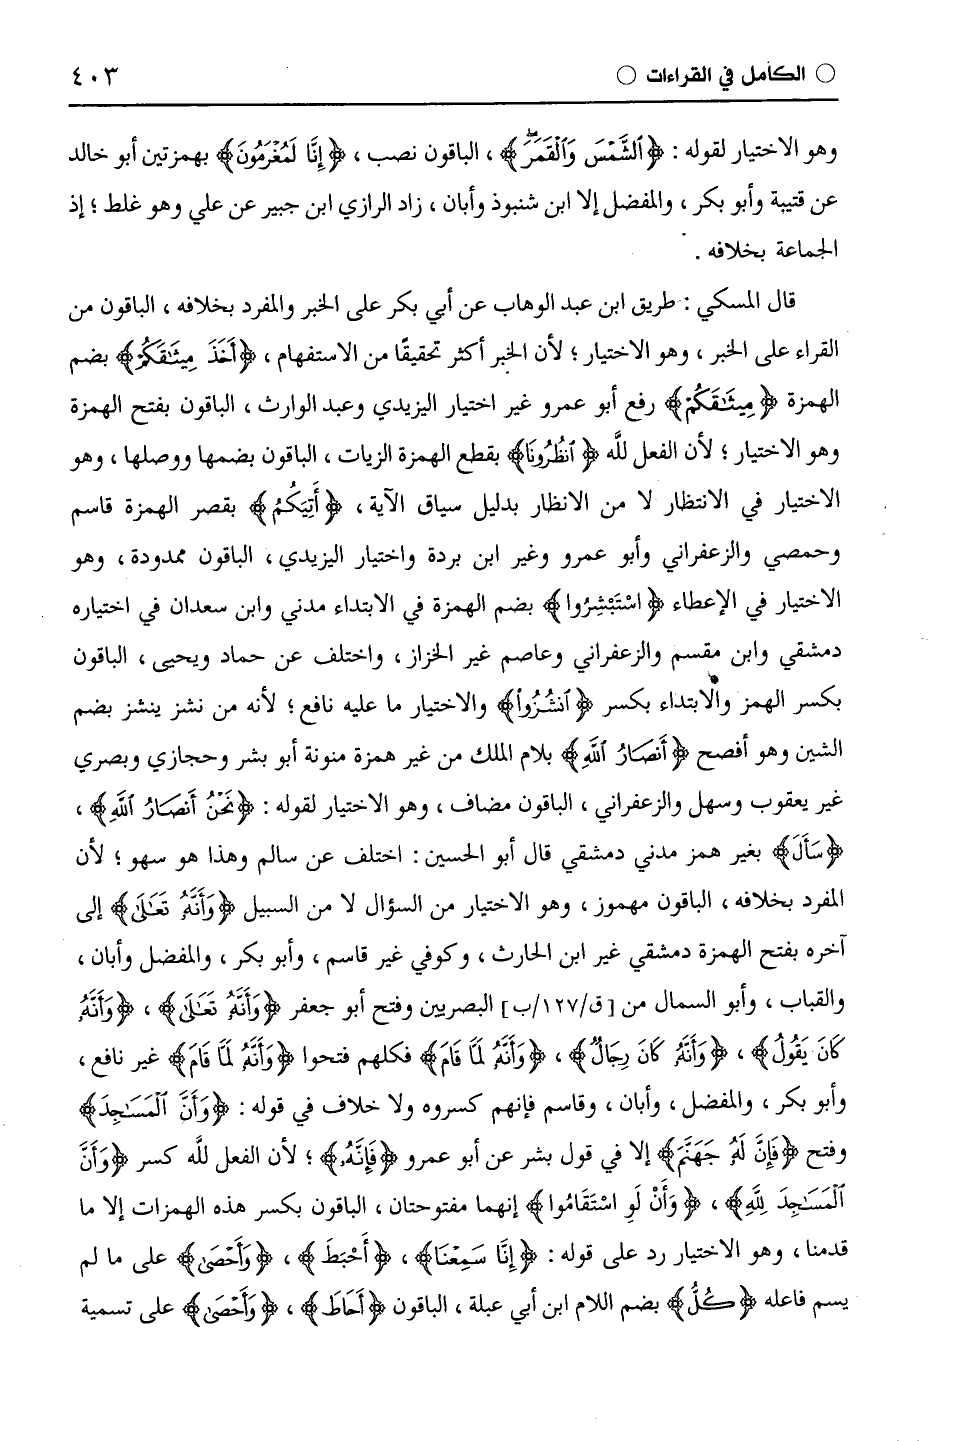 ○ الكامل في القراءات ○ ٤٠٣
وهو الاختيار لقوله : ﴿ٱلشَّمْسَ وَٱلْقَمَرَ﴾ ، الباقون نصب ، ﴿إِنَّا لَمُغْرَمُونَ﴾ بهمزتين أبو خالد
عن قتيبة وأبو بكر ، والمفضل إلا ابن شنبوذ وأبان ، زاد الرازي ابن جبير عن علي وهو غلط ؛ إذ
الجماعة بخلافه .
قال المسكي : طريق ابن عبد الوهاب عن أبي بكر على الخبر والمفرد بخلافه ، الباقون من
القراء على الخبر ، وهو الاختيار ؛ لأن الخبر أكثر تحقيقًا من الاستفهام ، ﴿أَخَذَ مِيثَٰقَكُمْ﴾ بضم
الهمزة ﴿مِيثَٰقَكُمْ﴾ رفع أبو عمرو غير اختيار اليزيدي وعبد الوارث ، الباقون بفتح الهمزة
وهو الاختيار ؛ لأن الفعل للَّه ﴿ٱنظُرُونَا﴾ بقطع الهمزة الزيات ، الباقون بضمها ووصلها ، وهو
الاختيار في الانتظار لا من الانظار بدليل سياق الآية ، ﴿أَتِيَكُمُ﴾ بقصر الهمزة قاسم
وحمصي والزعفراني وأبو عمرو وغير ابن بردة واختيار اليزيدي ، الباقون ممدودة ، وهو
الاختيار في الإعطاء ﴿اسْتَبْشِرُوا﴾ بضم الهمزة في الابتداء مدني وابن سعدان في اختياره
دمشقي وابن مقسم والزعفراني وعاصم غير الخزاز ، واختلف عن حماد ويحيى ، الباقون
بكسر الهمز والابتداء بكسر ﴿ٱنشُزُواْ﴾ والاختيار ما عليه نافع ؛ لأنه من نشز ينشز بضم
الشين وهو أفصح ﴿أَنصَارُ ٱللَّهِ﴾ بلام الملك من غير همزة منونة أبو بشر وحجازي وبصري
غير يعقوب وسهل والزعفراني ، الباقون مضاف ، وهو الاختيار لقوله : ﴿نَحْنُ أَنصَارُ ٱللَّهِ﴾ ،
﴿سَأَلَ﴾ بغير همز مدني دمشقي قال أبو الحسين : اختلف عن سالم وهذا هو سهو ؛ لأن
المفرد بخلافه ، الباقون مهموز ، وهو الاختيار من السؤال لا من السبيل ﴿وَأَنَّهُۥ تَعَٰلَىٰ﴾ إلى
آخره بفتح الهمزة دمشقي غير ابن الحارث ، وكوفي غير قاسم ، وأبو بكر ، والمفضل وأبان ،
والقباب ، وأبو السمال من [ق/١٢٧/ب] البصريين وفتح أبو جعفر ﴿وَأَنَّهُۥ تَعَٰلَىٰ﴾ ، ﴿وَأَنَّهُۥ
كَانَ يَقُولُ﴾ ، ﴿وَأَنَّهُۥ كَانَ رِجَالٌ﴾ ، ﴿وَأَنَّهُۥ لَمَّا قَامَ﴾ فكلهم فتحوا ﴿وَأَنَّهُۥ لَمَّا قَامَ﴾ غير نافع ،
وأبو بكر ، والمفضل ، وأبان ، وقاسم فإنهم كسروه ولا خلاف في قوله : ﴿وَأَنَّ ٱلْمَسَٰجِدَ﴾
وفتح ﴿فَإِنَّ لَهُۥ جَهَنَّمَ﴾ إلا في قول بشر عن أبو عمرو ﴿فَإِنَّهُۥ﴾ ؛ لأن الفعل للَّه كسر ﴿وَأَنَّ
ٱلْمَسَٰجِدَ لِلَّهِ﴾ ، ﴿وَأَنْ لَوِ اسْتَقَامُوا﴾ إنهما مفتوحتان ، الباقون بكسر هذه الهمزات إلا ما
قدمنا ، وهو الاختيار رد على قوله : ﴿إِنَّا سَمِعْنَا﴾ ، ﴿أَحْبَطَ﴾ ، ﴿وَأَحْصَىٰ﴾ على ما لم
يسم فاعله ﴿كُلُّ﴾ بضم اللام ابن أبي عبلة ، الباقون ﴿أَحَاطَ﴾ ، ﴿وَأَحْصَىٰ﴾ على تسمية